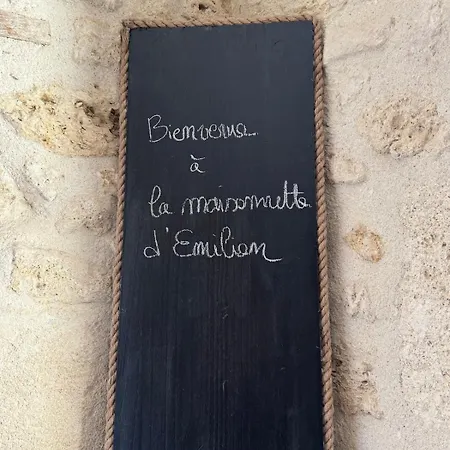 Bienvenus
à
la maisonnette
d'Emilion